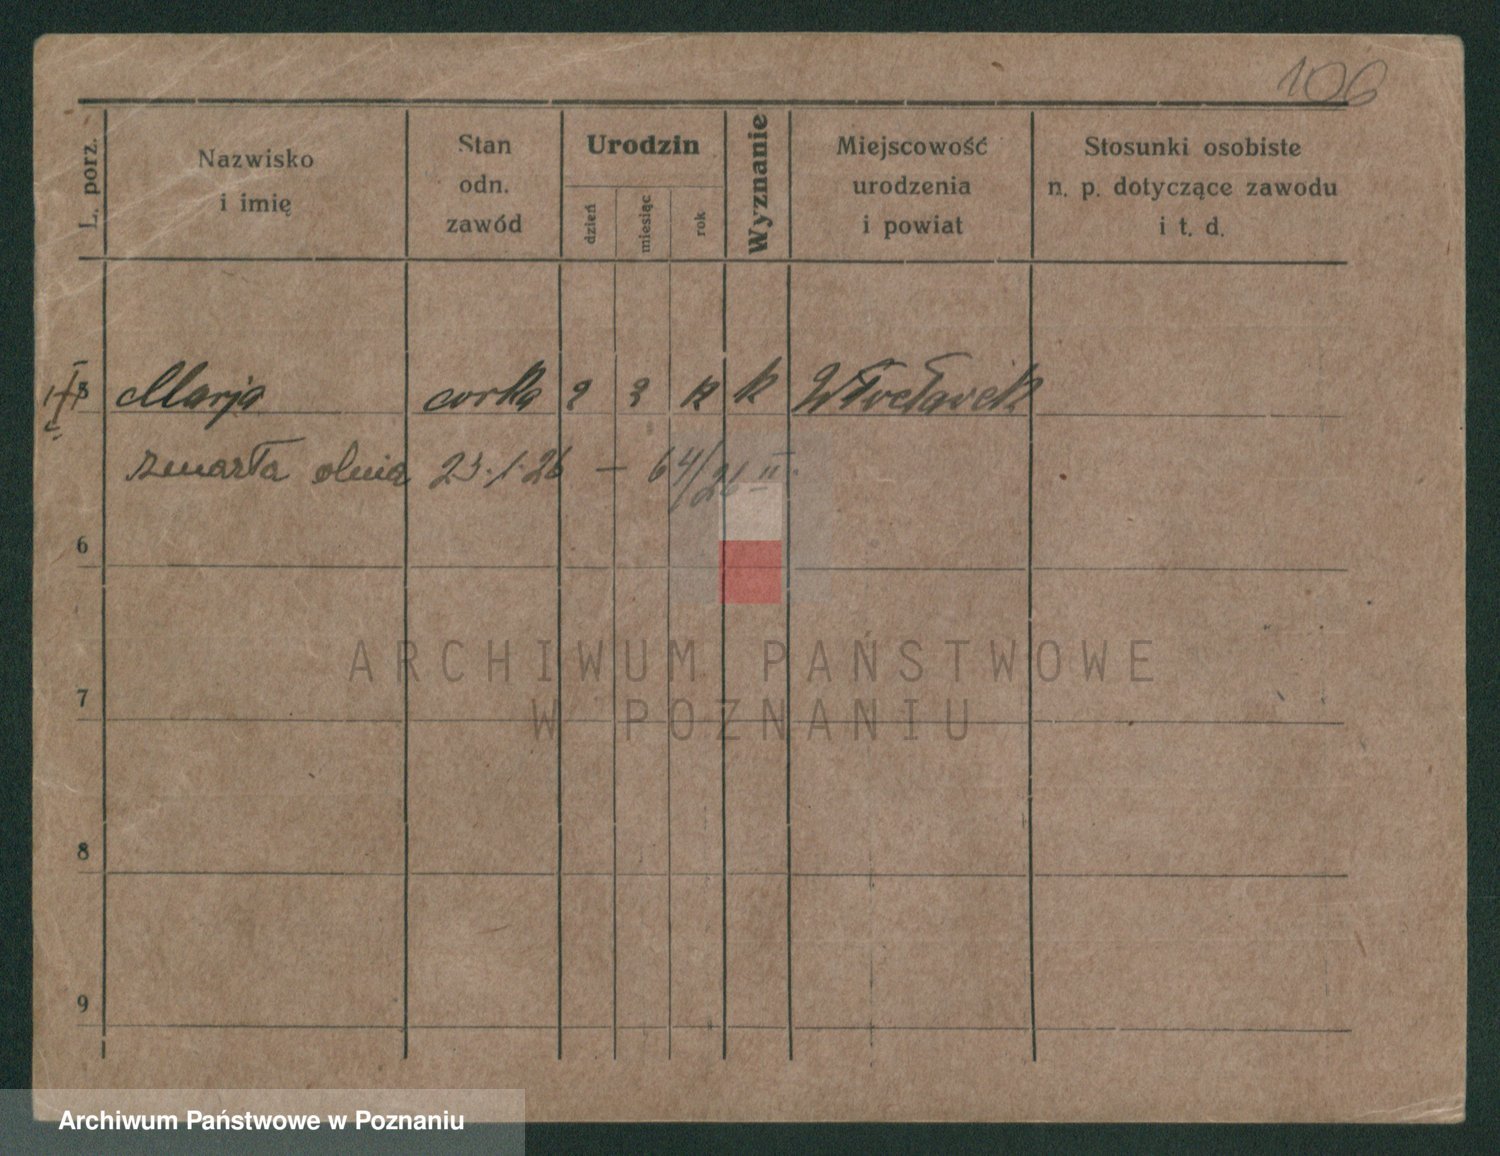 106
L. porz.
Nazwisko
i imię
Stan
odn.
zawód
Urodzin
dzień
miesiąc
rok
Wyznanie
Miejscowość
urodzenia
i powiat
Stosunki osobiste
n. p. dotyczące zawodu
i t. d.
5 Marja corka 2 3 12 k Włocławek
zmarła dnia 23.1.26 — 64/26 II.
6
ARCHIWUM PAŃSTWOWE
W POZNANIU
7
8
9
Archiwum Państwowe w Poznaniu